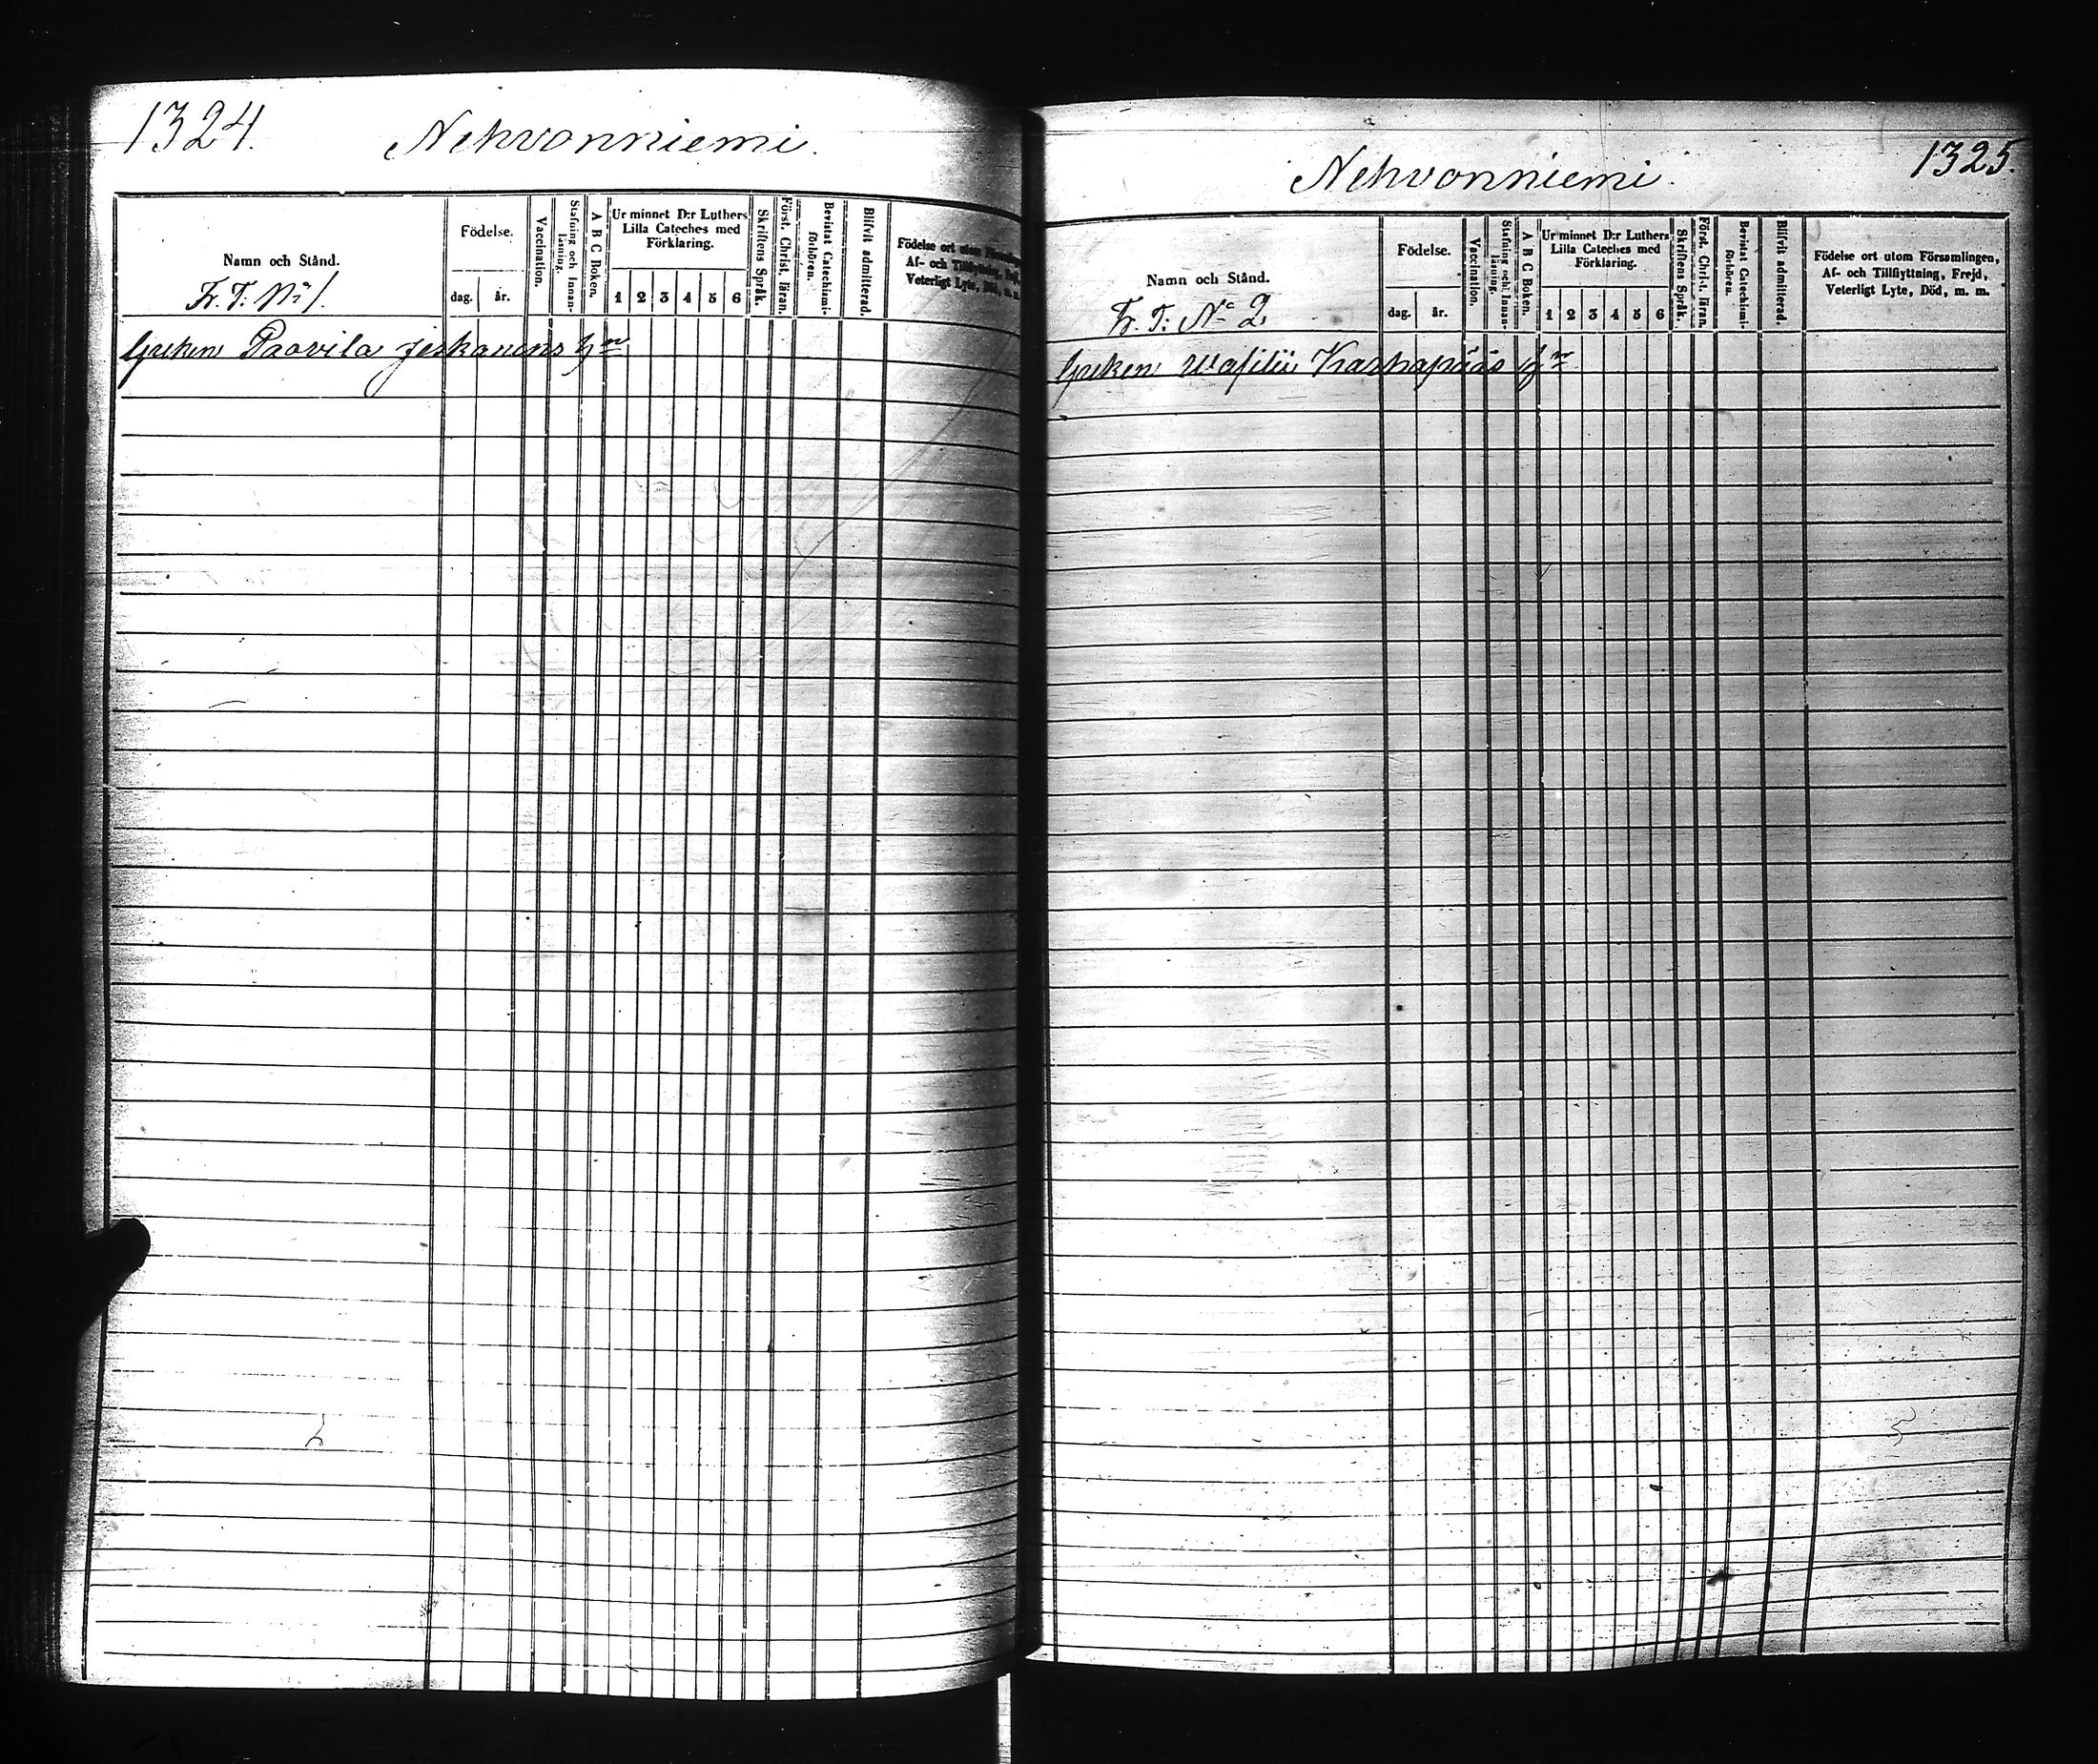 1324.
Nehvonniemi.
Namn och Stånd.
Fr. T: No 1.
Födelse.
dag. år.
Vaccination.
Stafning och Innanläsning.
A B C Boken.
Ur minnet D:r Luthers
Lilla Cateches med
Förklaring.
1 2 3 4 5 6
Skriftens Språk.
Först. Christ. läran.
Bevistat Catechismi-
förhören.
Blifvit admitterad.
Födelse ort utom
Af- och Tillflyttning,
Veterligt Lyte, Död, m. m.
Greken Paavila Jeskanens
1325.
Nehvonniemi.
Namn och Stånd.
Fr. T: No 2.
Födelse.
dag. år.
Vaccination.
Stafning och Innanläsning.
A B C Boken.
Ur minnet D:r Luthers
Lilla Cateches med
Förklaring.
1 2 3 4 5 6
Skriftens Språk.
Först. Christ. läran.
Bevistat Catechismi-
förhören.
Blifvit admitterad.
Födelse ort utom Församlingen,
Af- och Tillflyttning, Frejd,
Veterligt Lyte, Död, m. m.
Greken Wasilii Karhapääs